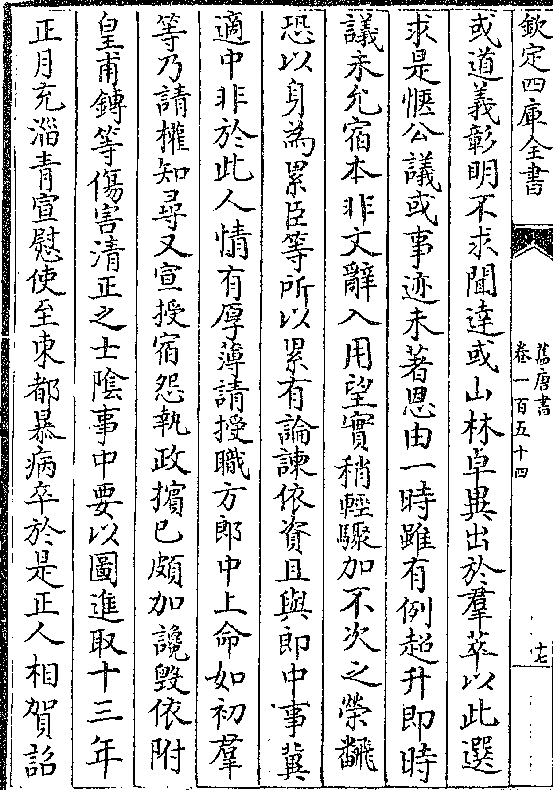 欽定四庫全書
舊唐書
卷一百五十四
十七
或道義彰明不求聞達或山林卓異出於羣萃以此選
求是愜公議或事迹未著恩由一時雖有例超升即時
議未允宿本非文辭入用望實稍輕驟加不次之榮飜
恐以身為累臣等所以累有論諫依資且與郎中事冀
適中非於此人情有厚薄請授職方郎中上命如初羣
等乃請權知尋又宣授宿怨執政擯已頗加讒毀依附
皇甫鏄等傷害清正之士陰事中要以圖進取十三年
正月充淄青宣慰使至東都暴病卒於是正人相賀詔